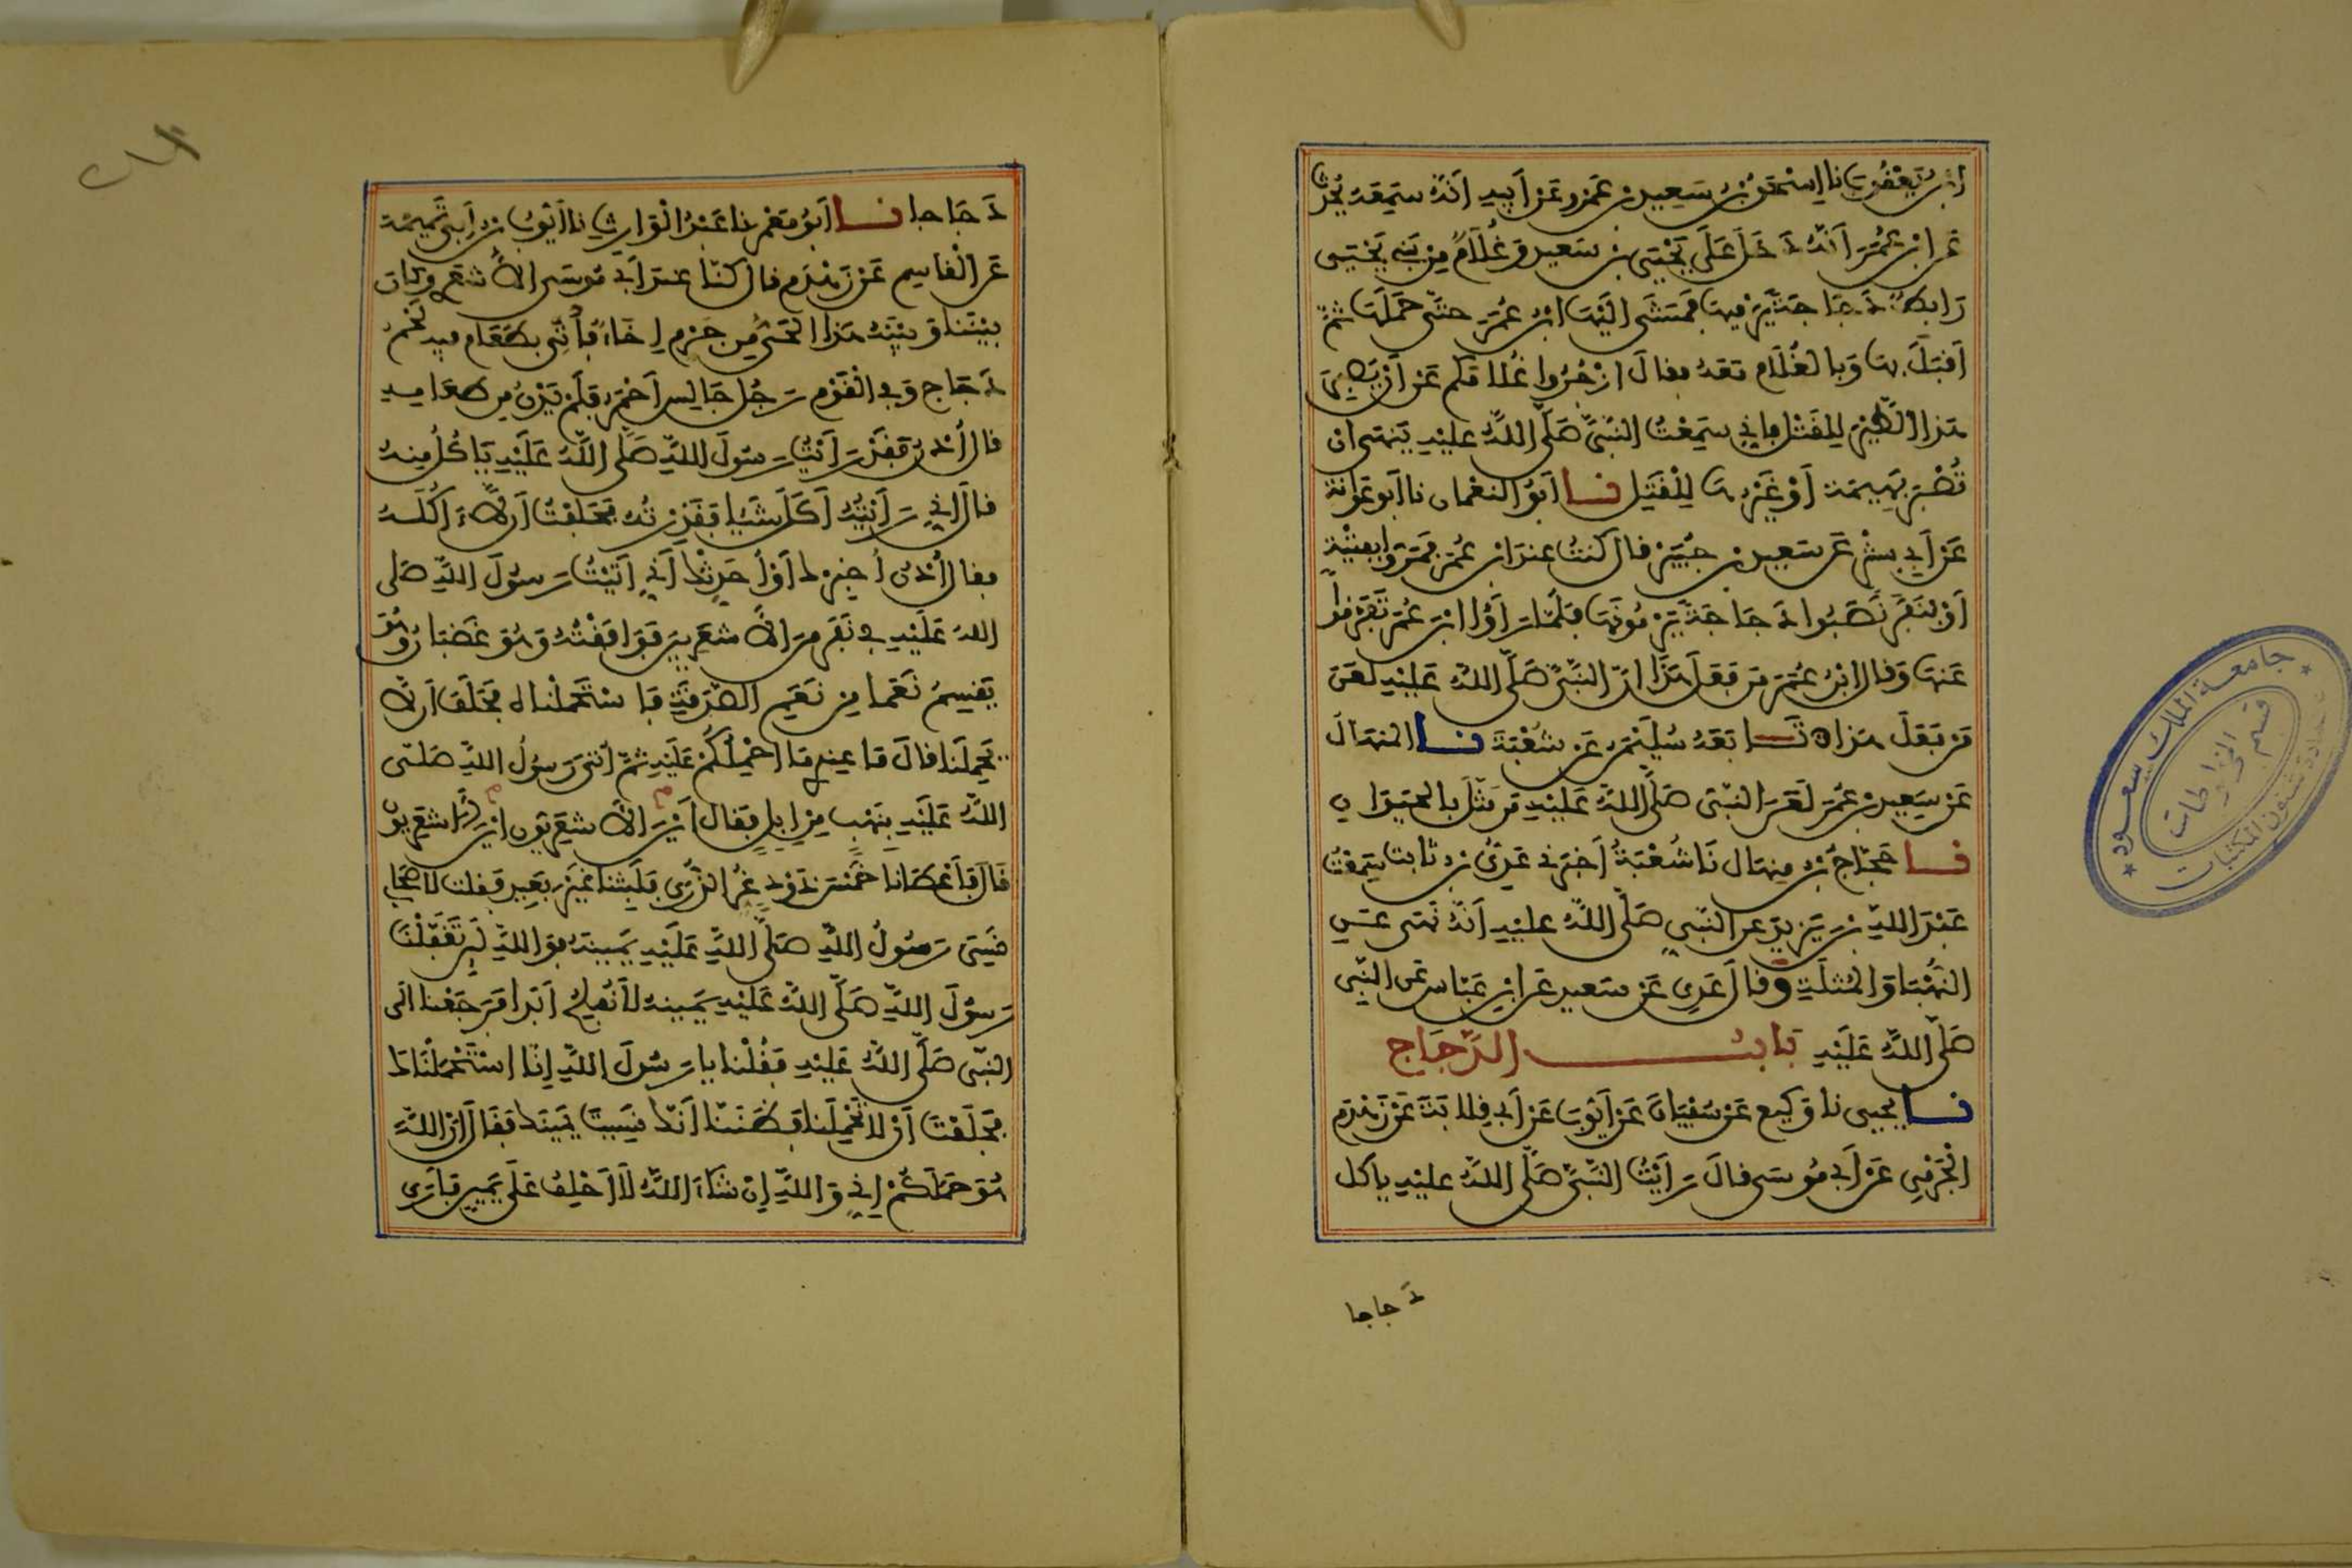 ابن يعقوب نا إسحق بن سعيد بن عمرو عن أبيه أنه سمعه يحدث
عن ابن عمر أنه دخل على يحيى بن سعيد وغلام من بني يحيى
رابط دجاجة يرميها فمشى إليها ابن عمر حتى حملها ثم
أقبل بها وبالغلام معه فقال ازجروا غلامكم عن أن يصبر
هذا الطير للقتل فإني سمعت النبي صلى الله عليه ينهى ان
تصبر بهيمة أو غيرها للقتل نا أبو النعمان نا أبو عوانة
عن أبي بشر عن سعيد بن جبير قال كنت عند ابن عمر فمروا بفتية
أو بنفر نصبوا دجاجة يرمونها فلما رأوا ابن عمر تفرقوا
عنها وقال ابن عمر من فعل هذا إن النبي صلى الله عليه لعن
من فعل هذا ه تابعه سليمن عن شعبة نا المنهال
عن سعيد بن عمر لعن النبي صلى الله عليه من مثل بالحيوان
نا حجاج بن منهال نا شعبة أخبرني عدي بن ثابت سمعت
عبد الله بن يزيد عن النبي صلى الله عليه أنه نهى عن
النهبا والمثلة وقال عدي عن سعيد عن ابن عباس عن النبي
صلى الله عليه باب الدجاج
نا يحيى نا وكيع عن سفيان عن أيوب عن أبي قلابة عن زهدم
الجرمي عن أبي موسى قال رأيت النبي صلى الله عليه يأكل
دجاجا
دجاجا نا أبو معمر نا عبد الوارث نا أيوب بن أبي تميمة
عن القاسم عن زهدم قال كنا عند أبي موسى الأشعري وكان
بيننا وبينه هذا الحي من جرم إخاء فأتي بطعام فيه لحم
دجاج وفي القوم رجل جالس أحمر فلم يدن من طعامه
قال أدن فقد رأيت رسول الله صلى الله عليه يأكل منه
قال إني رأيته أكل شيئا فقذرته فحلفت أن لا ءاكله
فقال أدن أخبرك أو أحدثك أني أتيت رسول الله صلى
الله عليه في نفر من الأشعريين فوافقته وهو غضبان وهو
يقسم نعما من نعم الصدقة فاستحملناه فحلف أن لا
يحملنا قال ما عندي ما أحملكم عليه ثم أتي رسول الله صلى
الله عليه بنهب من إبل فقال أين الأشعريون أين الأشعريون
قال فأعطانا خمس ذود غر الذرى فلبثنا غير بعيد فقلت لأصحابي
نسي رسول الله صلى الله عليه يمينه فوالله لئن تغفلنا
رسول الله صلى الله عليه يمينه لا نفلح أبدا فرجعنا الى
النبي صلى الله عليه فقلنا يا رسول الله إنا استحملناك
فحلفت أن لا تحملنا فظننا أنك نسيت يمينك فقال إن الله
هو حملكم إني والله إن شاء الله لا أحلف على يمين فأرى
جامعة الملك سعود
قسم المخطوطات
عمادة شئون المكتبات